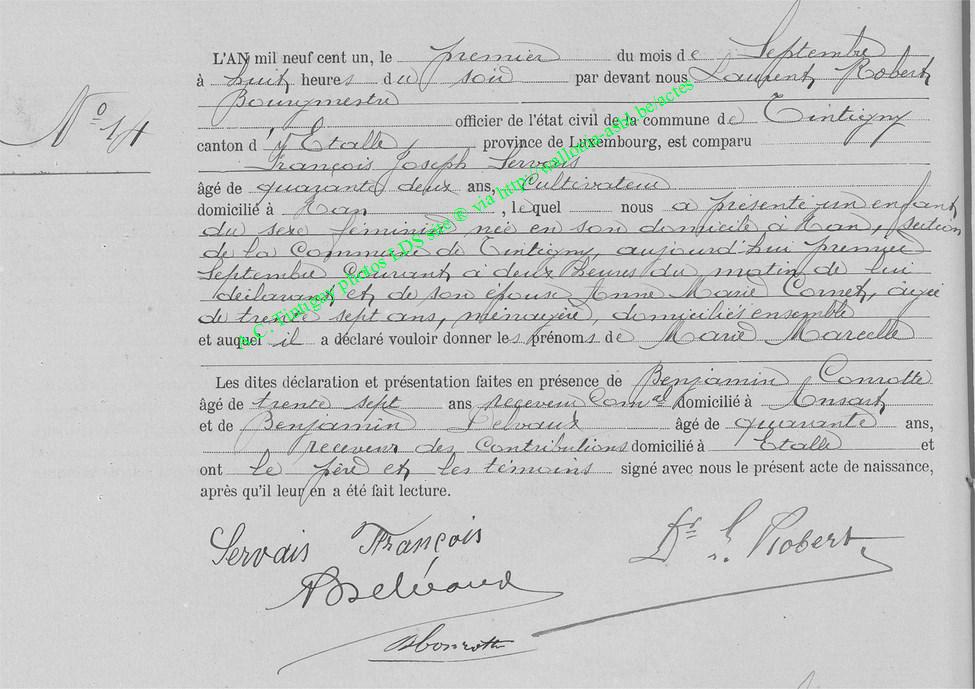 L'AN mil neuf cent un, le premier du mois de Septembre
à huit heures du soir par devant nous Laurent Robert
Bourgmestre
officier de l'état civil de la commune de Tintigny
N° 14
canton d'Etalle, province de Luxembourg, est comparu
François Joseph Servais
âgé de quarante deux ans, Cultivateur
domicilié à Han, lequel nous a présenté un enfant
du sexe féminin née en son domicile à Han, section
de la Commune de Tintigny, aujourd'hui premier
Septembre courant à deux heures du matin de lui
déclarant et de son épouse Anne Marie Cornet, âgée
de trente sept ans, ménagère, domiciliés ensemble
et auquel il a déclaré vouloir donner les prénoms de Marie Marcelle
Les dites déclaration et présentation faites en présence de Benjamin Conrotte
âgé de trente sept ans receveur Comal domicilié à Ansart
et de Benjamin âgé de quarante ans,
receveur des Contributions domicilié à Etalle et
ont le père et les témoins signé avec nous le présent acte de naissance,
après qu'il leur en a été fait lecture.
Servais François
Dr L Robert
BConrotte
A.C. Tintigny photos LDS site ® via http://wallonia-asbl.be/actes